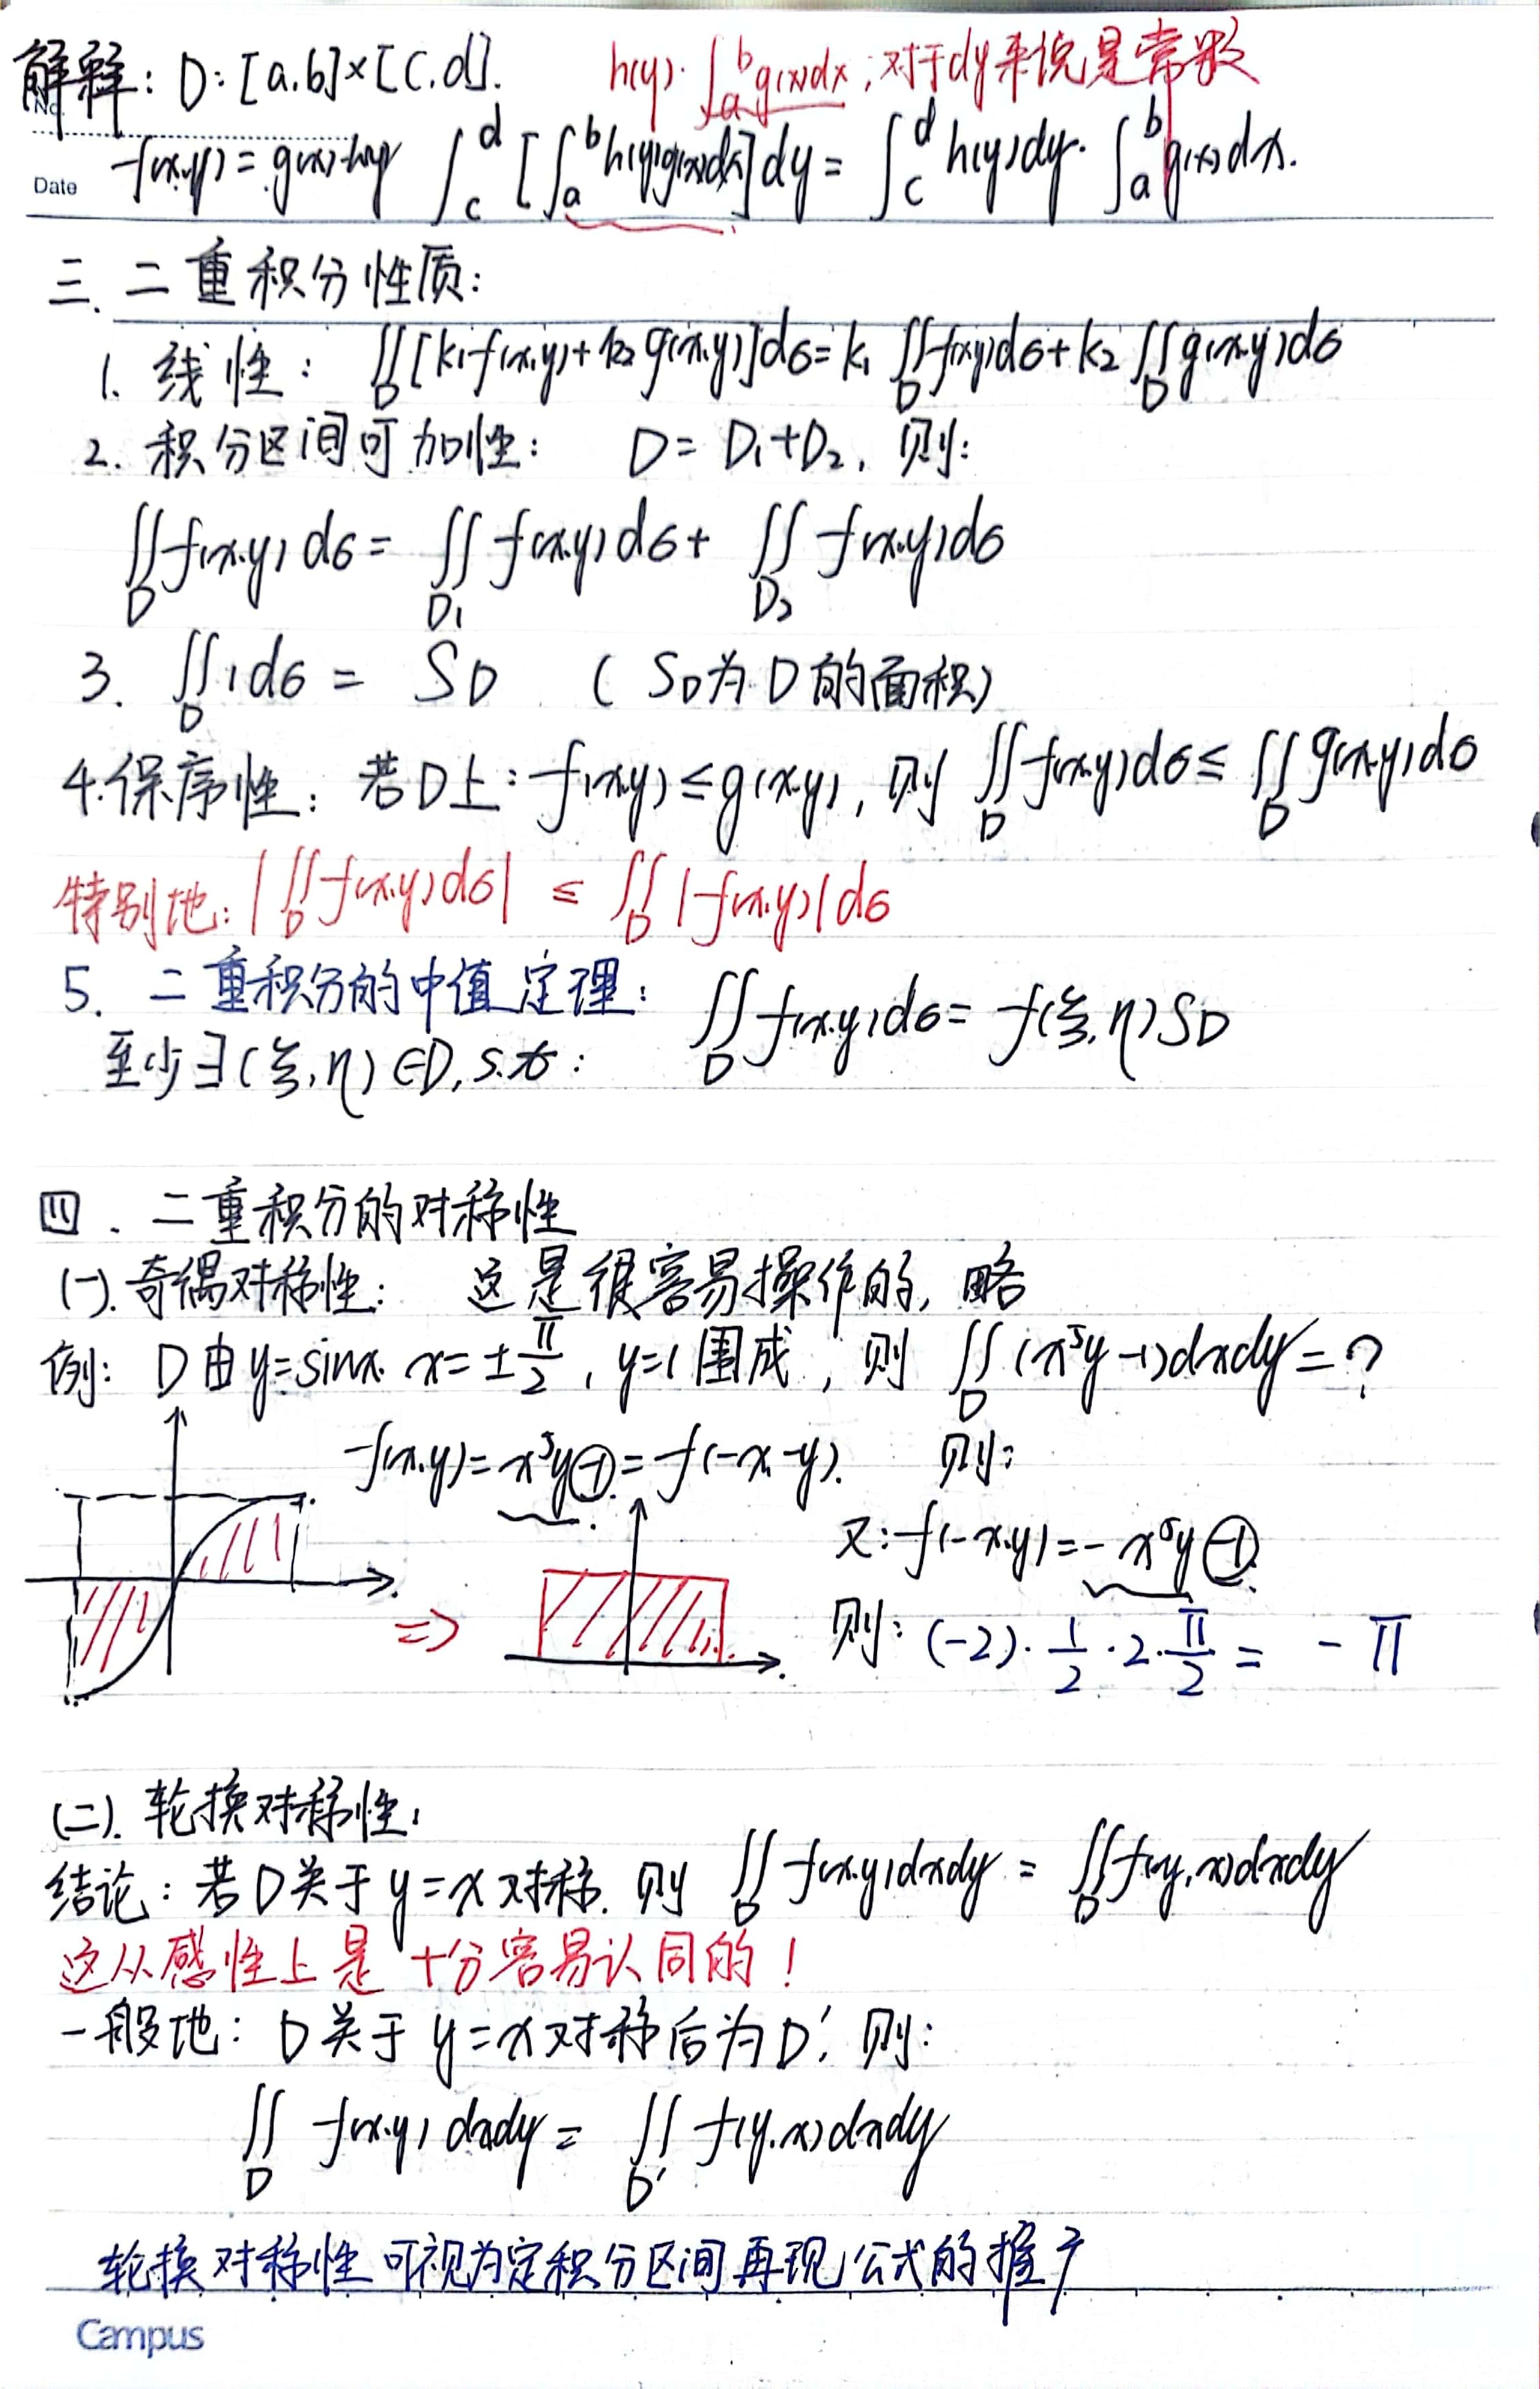 解释: D: [a.b]×[c.d].
h(y)·∫_a^b g(x)dx, 对于dy来说是常数
No.
Date
f(x.y) = g(x)·h(y) ∫_c^d [∫_a^b h(y)g(x)dx]dy = ∫_c^d h(y)dy·∫_a^b g(x)dx.
三. 二重积分性质:
1. 线性: ∬_D [k₁f(x.y)+k₂g(x.y)]dσ = k₁∬_D f(x.y)dσ + k₂∬_D g(x.y)dσ
2. 积分区间可加性: D = D₁+D₂, 则:
∬_D f(x.y)dσ = ∬_D₁ f(x.y)dσ + ∬_D₂ f(x.y)dσ
3. ∬_D 1dσ = S_D (S_D为D的面积)
4. 保序性: 若D上: f(x.y) ≤ g(x.y), 则 ∬_D f(x.y)dσ ≤ ∬_D g(x.y)dσ
特别地: |∬_D f(x.y)dσ| ≤ ∬_D |f(x.y)|dσ
5. 二重积分的中值定理: ∬_D f(x.y)dσ = f(ξ.η)S_D
至少∃(ξ,η)∈D, s.t:
四. 二重积分的对称性
(一). 奇偶对称性: 这是很容易操作的, 略
例: D由y=sinx. x=±π/2, y=1围成, 则 ∬_D (x⁵y-1)dxdy = ?
f(x.y) = x⁵y-1 = f(-x.-y). 则:
又: f(-x.y) = -x⁵y-1.
⇒ 则: (-2)·1/2·2·π/2 = -π
(二). 轮换对称性:
结论: 若D关于y=x对称. 则 ∬_D f(x.y)dxdy = ∬_D f(y.x)dxdy
这从感性上是十分容易认同的!
一般地: D关于y=x对称后为D', 则:
∬_D f(x.y)dxdy = ∬_D' f(y.x)dxdy
轮换对称性可视为定积分区间再现公式的推广
Campus